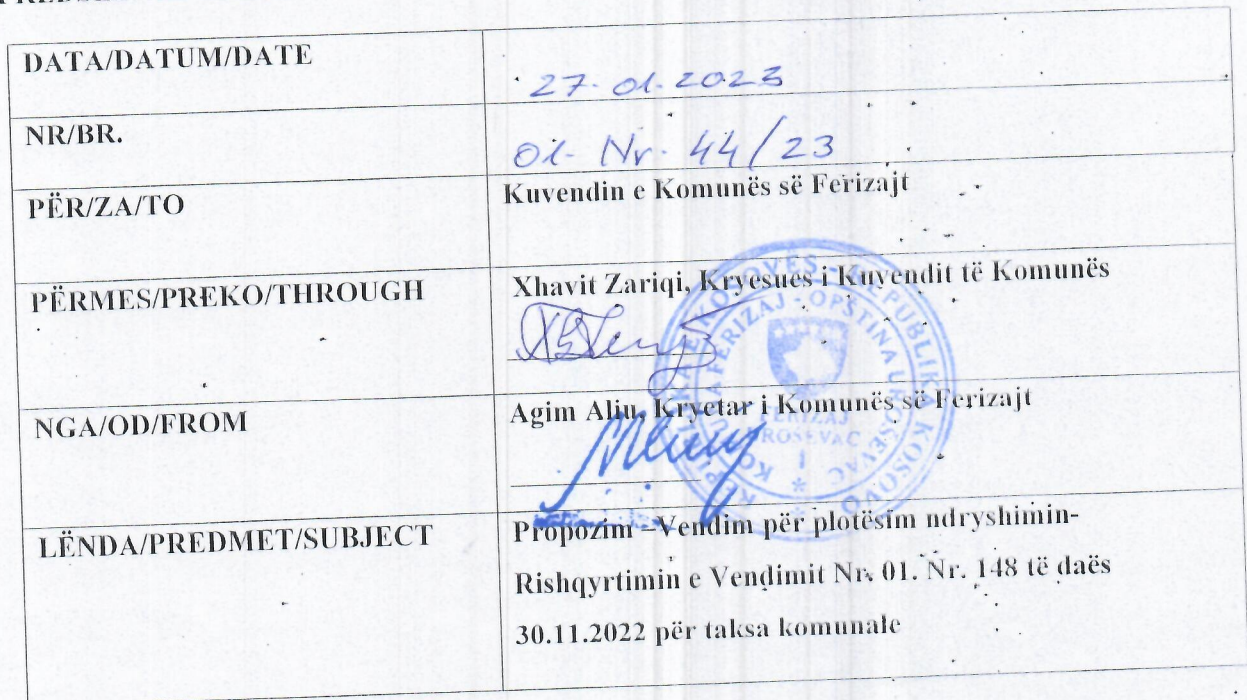 DATA/DATUM/DATE
27.01.2023
NR/BR.
01- Nr. 44/23
PËR/ZA/TO
Kuvendin e Komunës së Ferizajt
PËRMES/PREKO/THROUGH
Xhavit Zariqi, Kryesues i Kuvendit të Komunës
NGA/OD/FROM
Agim Aliu, Kryetar i Komunës së Ferizajt
FERIZAJ - OPŠTINA UROŠEVAC
REPUBLIKA KOSOVO
FERIZAJ
UROŠEVAC
LËNDA/PREDMET/SUBJECT
Propozim –Vendim për plotësim ndryshimin-
Rishqyrtimin e Vendimit Nr. 01. Nr. 148 të daës
30.11.2022 për taksa komunale